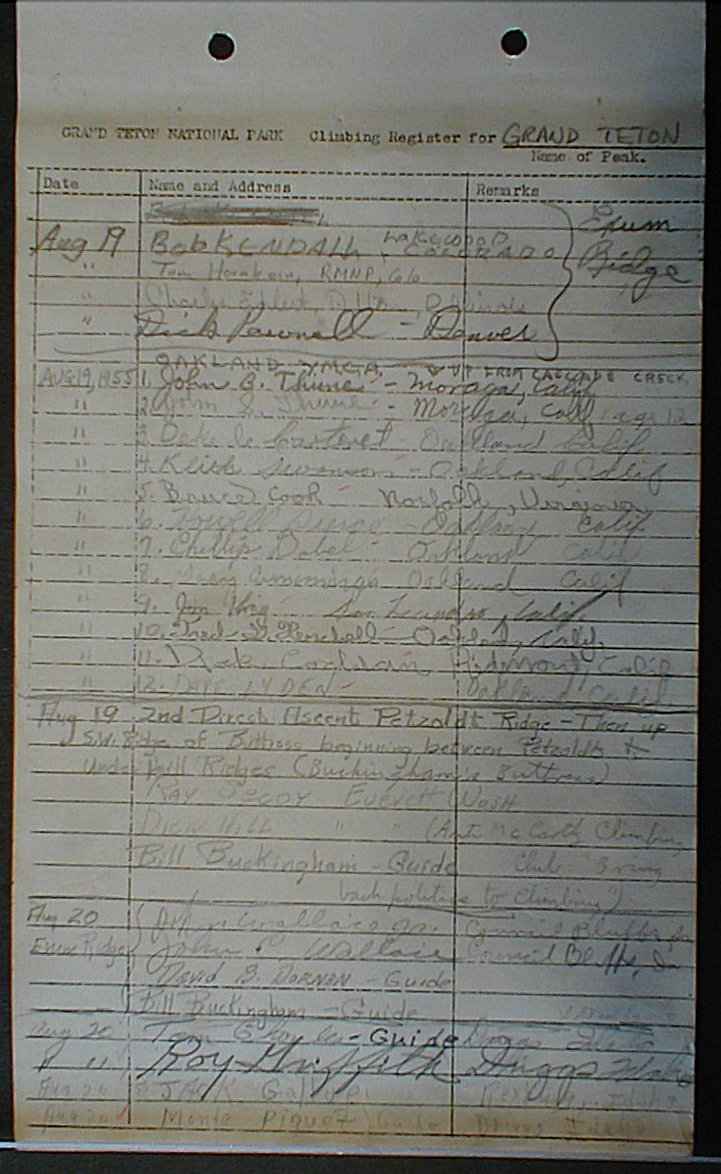 GRAND TETON NATIONAL PARK Climbing Register for GRAND TETON
Name of Peak.
Date Name and Address Remarks
Aug 19 Bob KENDALL LAKEWOOD COLORADO Exum Ridge
" Tom Hornbein, RMNP, Colo
" Charlie
" Dick Pownall - Denver
OAKLAND YMCA UP FROM CASCADE CREEK
AUG 19, 1955 1. John B. Thune - Moraga, Calif.
" 2. John Thune - Moraga, Calif age 12
" 3. Deke le - Oakland Calif
" 4. Keith Swanson - Oakland, Calif
" 5. Bruce Cook - Norfolk, Virginia
" 6. Howell - Oakland Calif
" 7. Phillip Dabel - Oakland Calif
" 8. Cummings Oakland Calif
" 9. Jim King San Leandro, Calif.
" 10. Fred - Oakland, Calif.
" 11. Dick Piedmont, Calif
" 12. DAVE LYDEN - Oakland, Calif.
Aug 19 2nd Direct Ascent Petzoldt Ridge - Then up
S.W. Ridge of Buttress beginning between Petzoldt &
Underhill Ridges (Buckingham's Buttress)
RAY SECOY Everett Wash
Dick Hill " " (Anti McCarthy Climbing
Bill Buckingham - Guide Club "Bring
back politics to climbing")
Aug 20 Wallace Jr. Council Bluffs, Ia
Exum Ridge John Wallace Council Bluffs, Ia
DAVID B. DORNAN - Guide
Bill Buckingham - Guide
Aug 20 Tom - Guide Driggs Idaho
" " Roy Griffith Driggs Idaho
Aug 20 JACK Idaho
Aug 20 Monte Piquet Guide Driggs Idaho